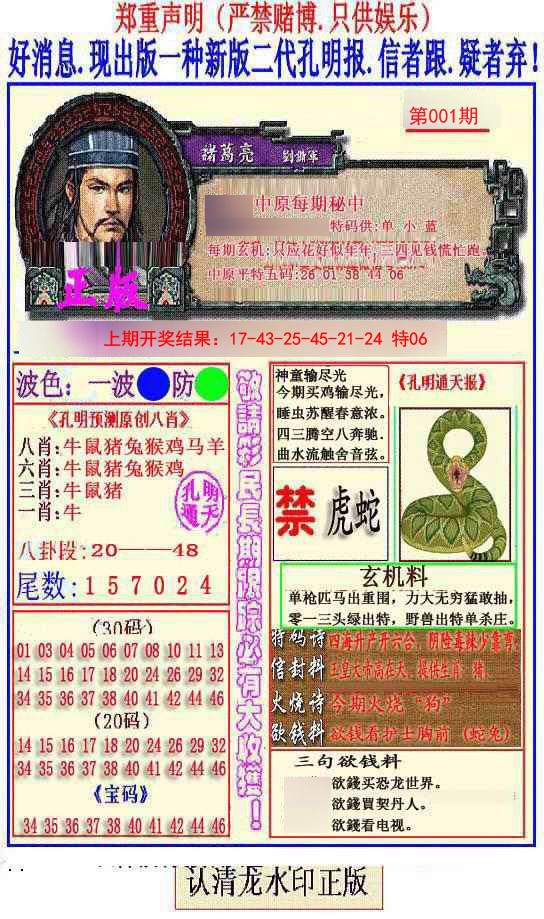 郑重声明（严禁赌博.只供娱乐）
好消息.现出版一种新版二代孔明报.信者跟.疑者弃!
第001期
諸葛亮
中原每期秘中
特码供:单 小 蓝
每期玄机:只应花好似年年,三四见钱慌忙跑。
中原平特五码:26 01 38 44 06
正版
上期开奖结果：17-43-25-45-21-24 特06
波色：一波 防
《孔明预测原创八肖》
八肖:牛鼠猪兔猴鸡马羊
六肖:牛鼠猪兔猴鸡
三肖:牛鼠猪
一肖:牛
孔明
通天
八卦段:20——48
尾数:157024
(30码)
01 03 04 05 06 07 08 10 11 13
14 15 16 17 18 20 24 26 29 32
34 35 36 37 38 40 41 42 44 46
(20码)
14 15 16 17 18 20 24 26 29 32
34 35 36 37 38 40 41 42 44 46
《宝码》
34 35 36 37 38 40 41 42 44 46
敬請彩民長期跟踪必有大收獲！
神童输尽光
今期买鸡输尽光，
睡虫苏醒春意浓。
四三腾空八奔驰.
曲水流触舍音弦。
《孔明通天报》
禁
虎蛇
玄机料
单枪匹马出重围，力大无穷猛敢抽，
零一三头绿出特，野兽出特单杀庄。
特码诗 四海升产开六合，阴险毒辣少靠旁；
信封料 玉皇大帝高在天、提供生肖：猪、
火烧诗 今期火烧“狗”
欲钱料 欲钱看护士胸前（蛇兔）
三句欲钱料
欲錢买恐龙世界。
欲錢買契丹人。
欲錢看电视。
认清龙水印正版